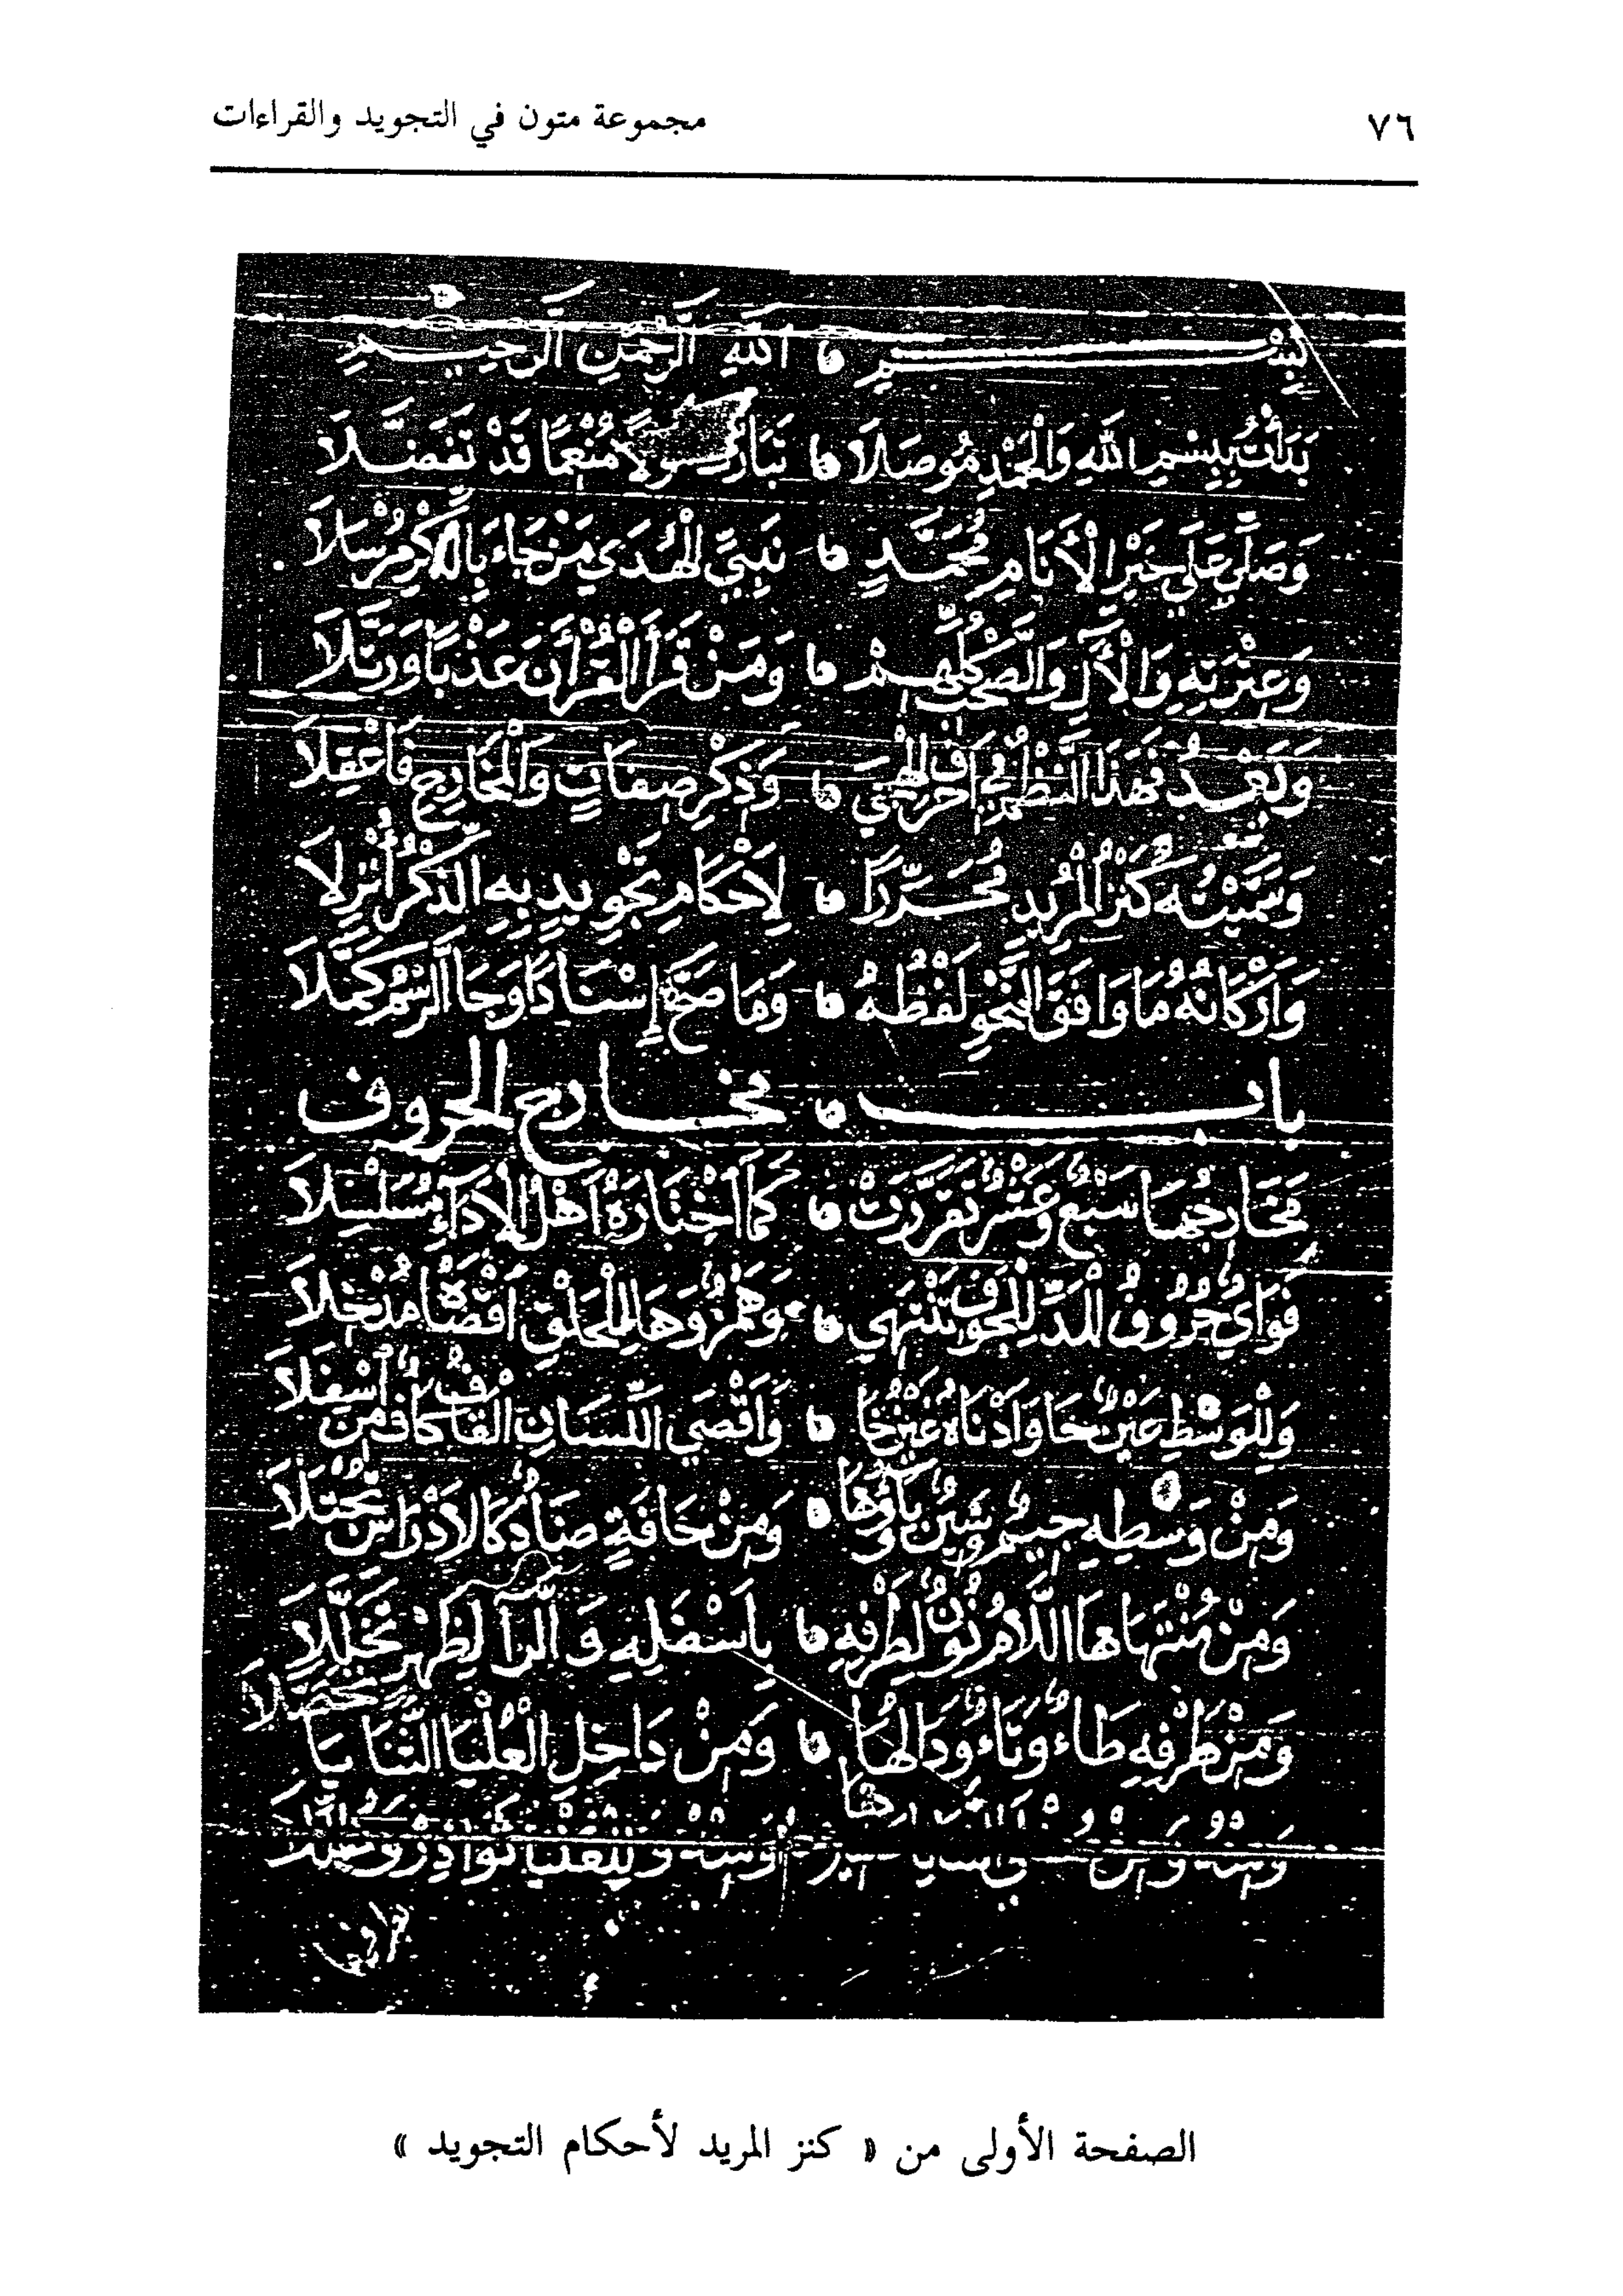 ٧٦ مجموعة متون في التجويد والقراءات
بِسْمِ اللَّهِ الرَّحْمَنِ الرَّحِيمِ
بَدَأْتُ بِبِسْمِ اللَّهِ وَالْحَمْدِ مُوصَلَا تَبَارَكَ مَوْلًا مُنْعِمًا قَدْ تَفَضَّلَا
وَصَلَّى عَلَى خَيْرِ الْأَنَامِ مُحَمَّدٍ نَبِيِّ الْهُدَى مَنْ جَاءَ بِالذِّكْرِ مُرْسَلَا
وَعِتْرَتِهِ وَالْآلِ وَالصَّحْبِ كُلِّهِمْ وَمَنْ قَرَأَ الْقُرْأَنَ عَذْبًا وَرَتَّلَا
وَبَعْدُ فَهَذَا النَّظْمُ فِي أَحْرُفِ الْهِجَى وَذِكْرِ صِفَاتٍ وَالْمَخَارِجِ فَاعْقِلَا
وَسَمَّيْتُهُ كَنْزَ الْمُرِيدِ مُحَرَّرًا لِأَحْكَامِ تَجْوِيدٍ بِهِ الذِّكْرُ أُنْزِلَا
وَأَرْكَانُهُ مَا وَافَقَ النَّحْوَ لَفْظُهُ وَمَا صَحَّ إِسْنَادًا وَجَا الرَّسْمُ كَمَّلَا
باب مخارج الحروف
مَخَارِجُهَا سَبْعٌ وَعَشْرٌ تَقَرَّرَتْ كَمَا اخْتَارَهُ أَهْلُ الْأَدَآءِ مُسَلْسَلَا
فَوَاىٌ حُرُوفُ الْمَدِّ لِلْجَوْفِ تَنْتَهِي وَهَمْزٌ وَهَا لِلْحَلْقِ أَقْصَاهُمَا
وَلِلْوَسْطِ عَيْنٌ حَا وَأَدْنَاهُ غَيْنُ خَا وَأَقْصَى اللِّسَانِ الْقَافُ كَافٌ مِنَ أَسْفَلَا
وَمِنْ وَسْطِهِ جِيمٌ وَشِينٌ وَيَاؤُهَا وَمِنْ حَافَةٍ ضَادٌ كَالَاضْرَاسِ
وَمِنْ مُنْتَهَاهَا اللَّامُ نُونٌ لِطَرْفِهِ بِأَسْفَلِهِ وَالرَّا لِظَهْرٍ
وَمِنْ طَرْفِهِ طَاءٌ وَتَاءٌ وَدَالُهَا وَمِنْ دَاخِلِ الْعُلْيَا الثَّنَايَا
الصفحة الأولى من « كنز المريد لأحكام التجويد »